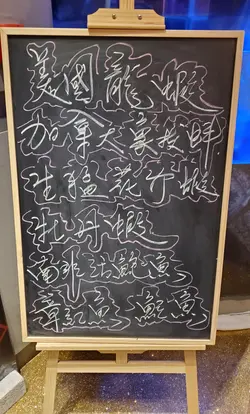 美國龍蝦
加拿大象拔蚌
生猛花竹蝦
牡丹蝦
南非活鮑魚
章紅魚 鮑魚